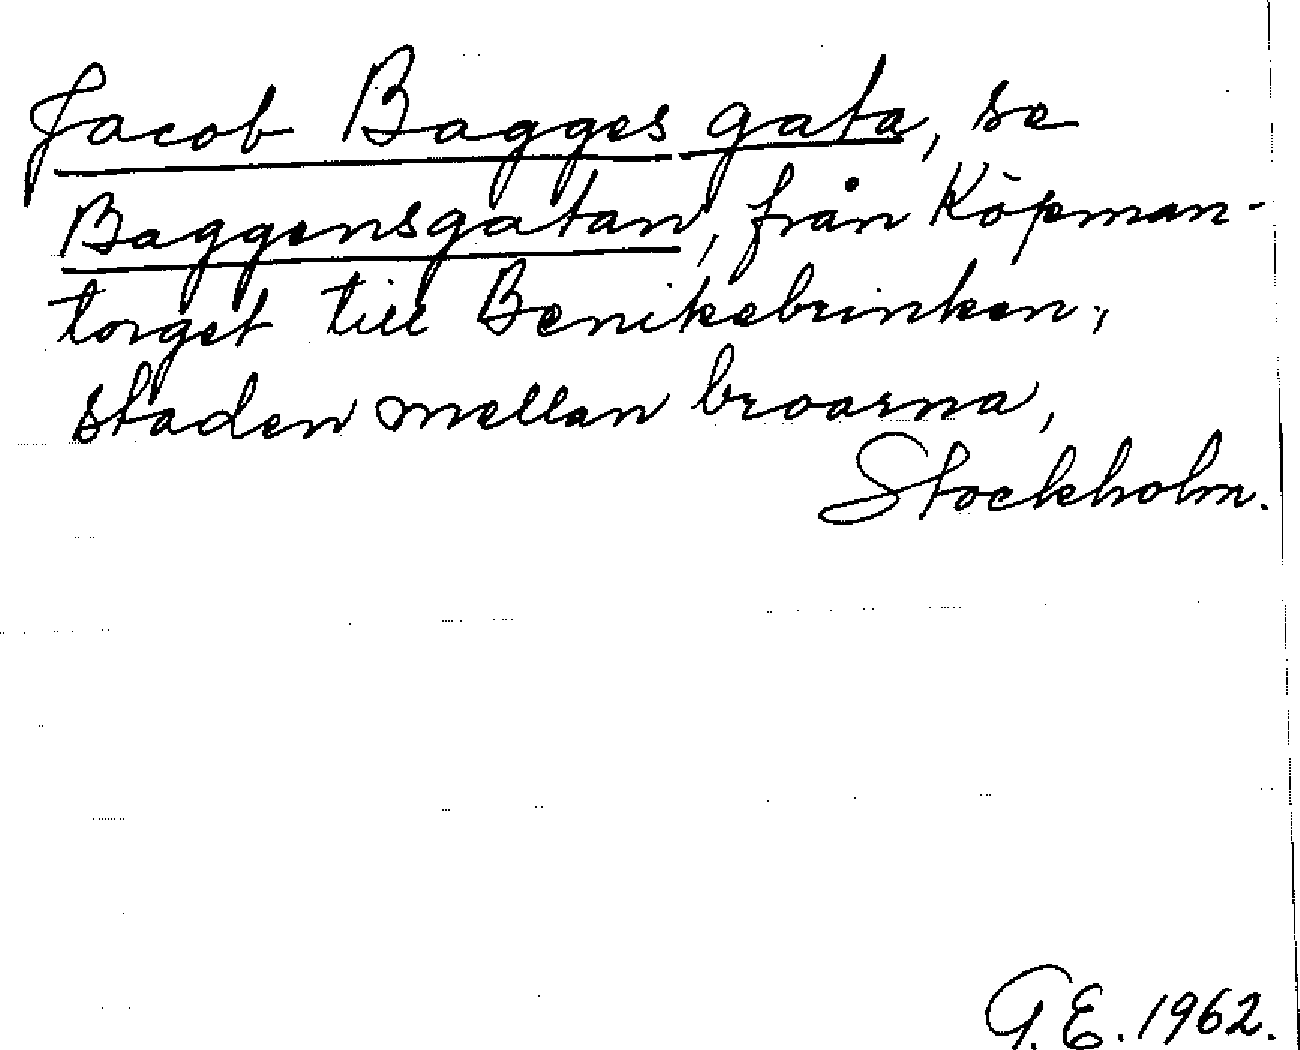 Jacob Bagges gata, se
Baggensgatan, från Köpman-
torget till Benikebrinken,
staden mellan broarna,
Stockholm.
G.E. 1962.